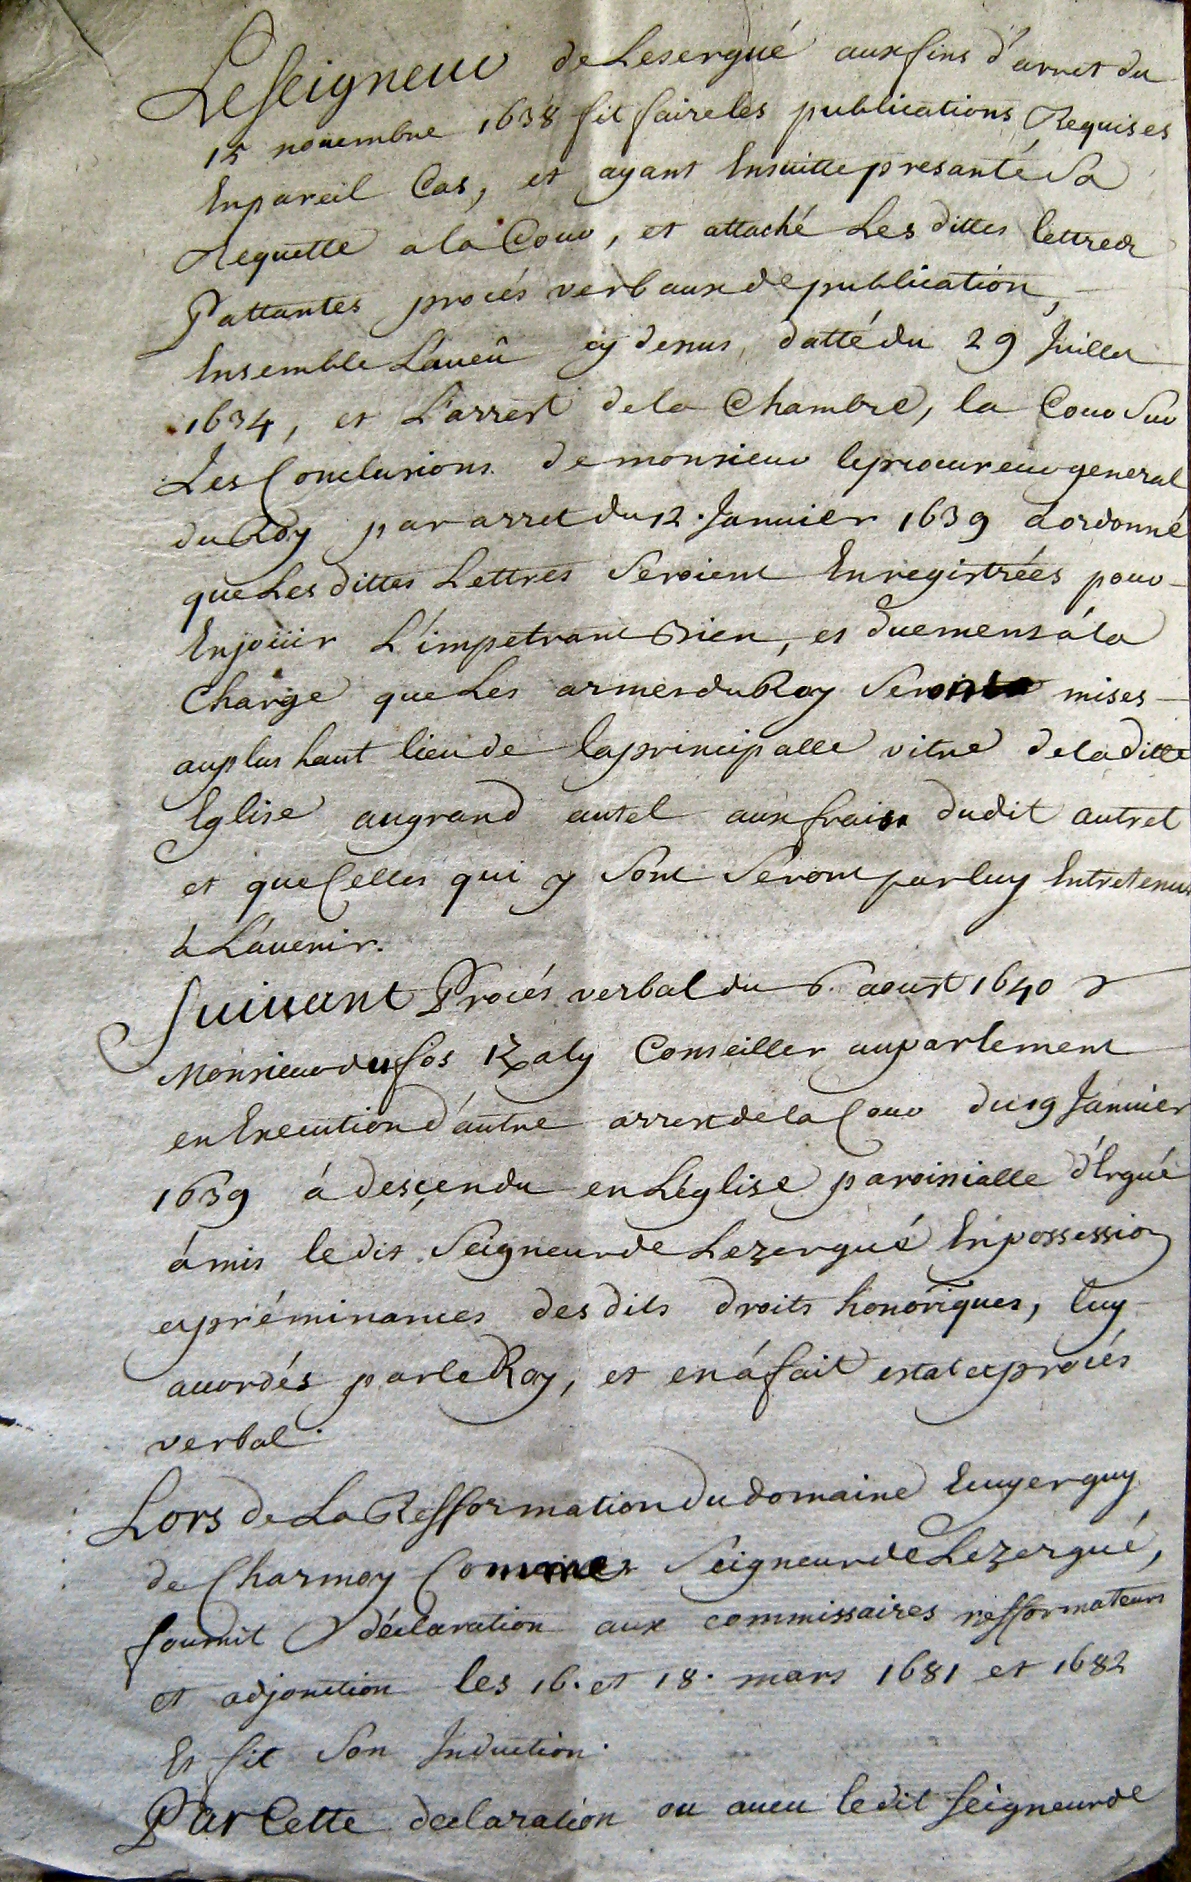 Le Seigneur de Lesergué aux fins d'arret du
15 nouembre 1638 fit faire les publications Requises
En pareil Cas, et ayant Ensuitte presanté Sa
Requette a la Cour, et attaché Les dittes lettres
Pattantes procés verbaux de publication,
Ensemble L'aueû cy desus, datté du 29 Juillet
1634, et L'arrest de la Chambre, la Cour Sur
Les Conclusions de monsieur le procureur general
du Roy par arret du 12. Januier 1639 a ordonné
que Les dittes Lettres Seroient Enregistrées pour
En jouir L'impetrant Bien, et Duement á la
Charge que Les armes du Roy Seront mises
au plus haut lieu de la principalle vitre de la ditte
Eglise au grand autel aux frais dudit autret
et que Celles qui y Sont Seront par luy Entretenus
à L'auenir.
Suiuant Procés verbal du 6. aoust 1640
Monsieur du fos Kaly Conseiller au parlement
en Execution d'autre arrest de la Cour du 19 Januier
1639 á desçendu en L'eglise paroissialle d'Ergué
á mis le dit Seigneur de Lezergué En possession
et préminances des dits droits honoriques, luy
acordés par le Roy, et en á fait estat et procés
verbal.
Lors de La Refformation du domaine Ecuyer guy
de Charmoy Comme Seigneur de Lezergué,
fournit déclaration aux commissaires refformateurs
et adjonction les 16. et 18. mars 1681 et 1682
Et fit Son Induction.
Par Cette declaration ou aueu le dit Seigneur de